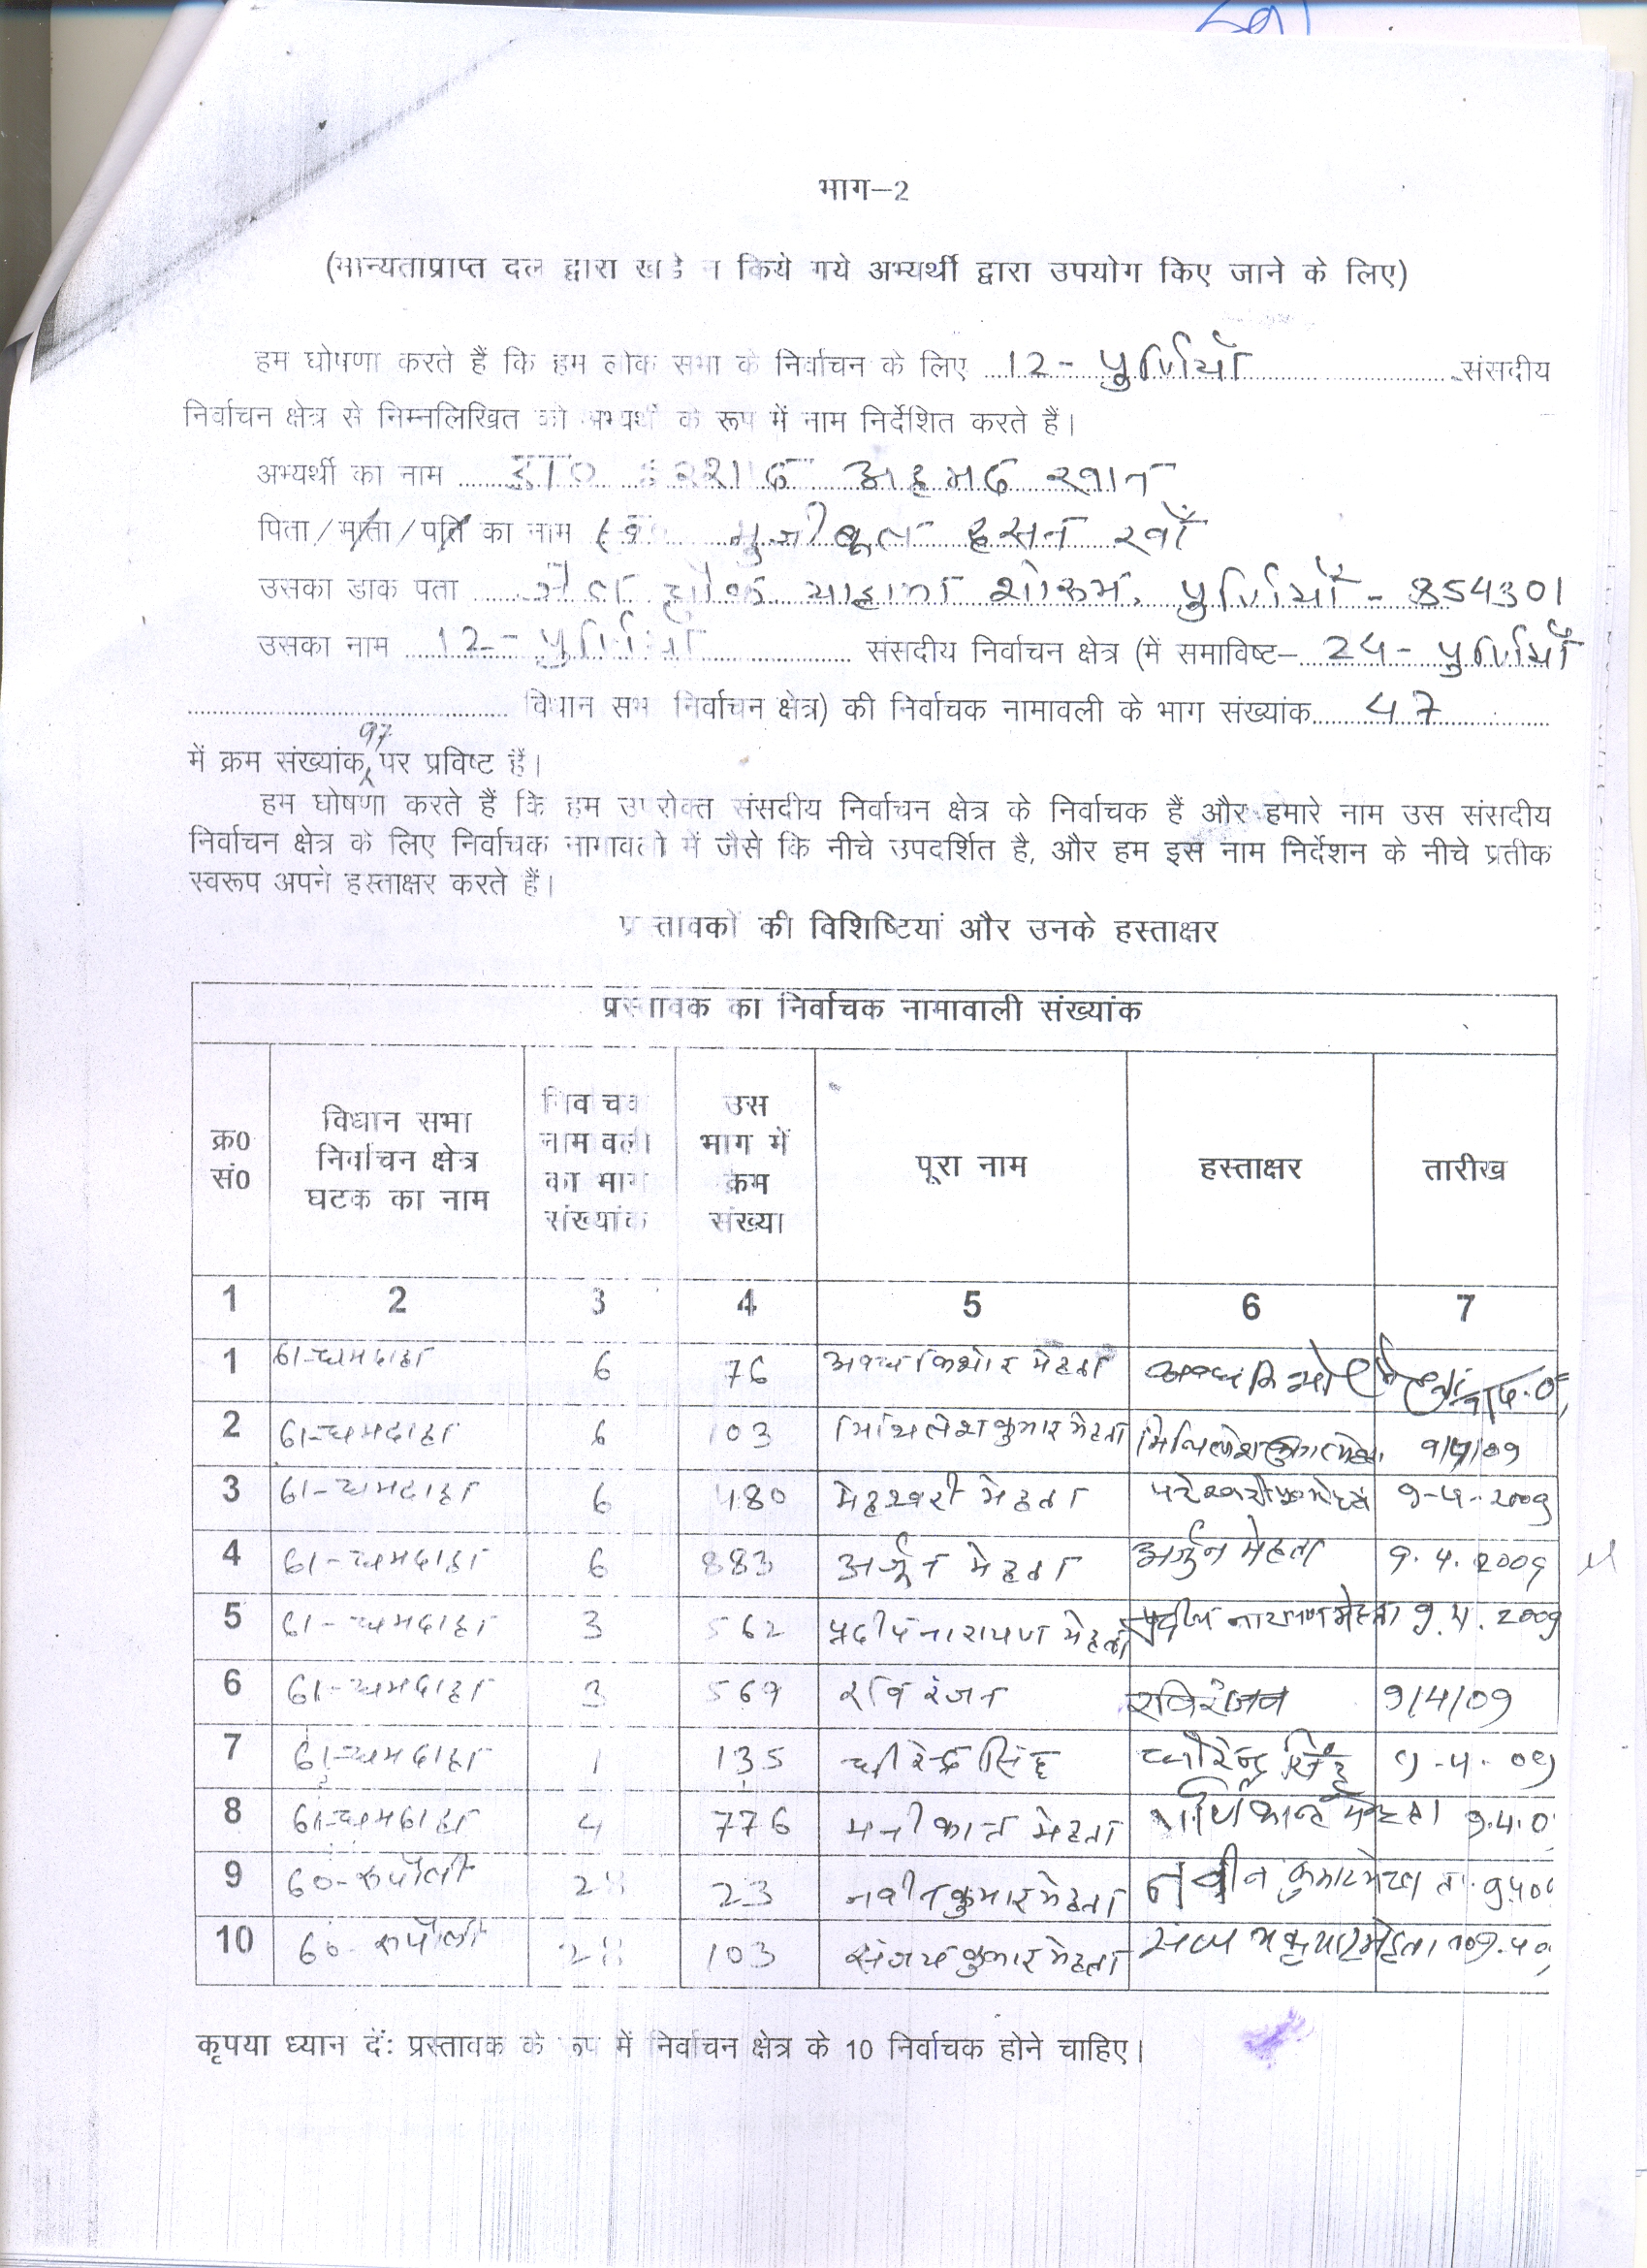 भाग–2
(मान्यताप्राप्त दल द्वारा खडे न किये गये अभ्यर्थी द्वारा उपयोग किए जाने के लिए)
हम घोषणा करते हैं कि हम लोक सभा के निर्वाचन के लिए 12- पुर्णियाँ संसदीय
निर्वाचन क्षेत्र से निम्नलिखित को अभ्यर्थी के रूप में नाम निर्देशित करते हैं।
अभ्यर्थी का नाम डा0 इरशाद अहमद खान
पिता/माता/पति का नाम हसन खाँ
उसका डाक पता चौक शोरूम, पुर्णियाँ - 854301
उसका नाम 12- पुर्णियाँ संसदीय निर्वाचन क्षेत्र (में समाविष्ट– 24- पुर्णियाँ
विधान सभा निर्वाचन क्षेत्र) की निर्वाचक नामावली के भाग संख्यांक 47
में क्रम संख्यांक 97 पर प्रविष्ट हैं।
हम घोषणा करते हैं कि हम उपरोक्त संसदीय निर्वाचन क्षेत्र के निर्वाचक हैं और हमारे नाम उस संसदीय
निर्वाचन क्षेत्र के लिए निर्वाचक नामावली में जैसे कि नीचे उपदर्शित है, और हम इस नाम निर्देशन के नीचे प्रतीक
स्वरूप अपने हस्ताक्षर करते हैं।
प्रस्तावकों की विशिष्टियां और उनके हस्ताक्षर
प्रस्तावक का निर्वाचक नामावाली संख्यांक
क्र0 सं0 विधान सभा निर्वाचन क्षेत्र घटक का नाम निर्वाचक नामावली का भाग संख्यांक उस भाग में क्रम संख्या पूरा नाम हस्ताक्षर तारीख
1 2 3 4 5 6 7
1 61-धमदाहा 6 76 अवध किशोर मेहता अवध किशोर मेहता
2 61-धमदाहा 6 103 मिथिलेश कुमार मेहता मिथिलेश कुमार मेहता 9/4/09
3 61-धमदाहा 6 480 मेहश्वरी मेहता 9-4-2009
4 61-धमदाहा 6 883 अर्जुन मेहता अर्जुन मेहता 9.4.2009
5 61-धमदाहा 3 562 प्रदीप नारायण मेहता प्रदीप नारायण मेहता 9.4.2009
6 61-धमदाहा 3 569 रवि रंजन रविरंजन 9/4/09
7 61-धमदाहा 1 135 धीरेन्द्र सिंह धीरेन्द्र सिंह 9-4-09
8 61-धमदाहा 4 776 मनीकान्त मेहता मणिकान्त मेहता 9.4.0
9 60-रुपौली 23 नवीन कुमार मेहता नवीन कुमार मेहता
10 60-रुपौली 103 संजय कुमार मेहता
कृपया ध्यान दें: प्रस्तावक के रूप में निर्वाचन क्षेत्र के 10 निर्वाचक होने चाहिए।